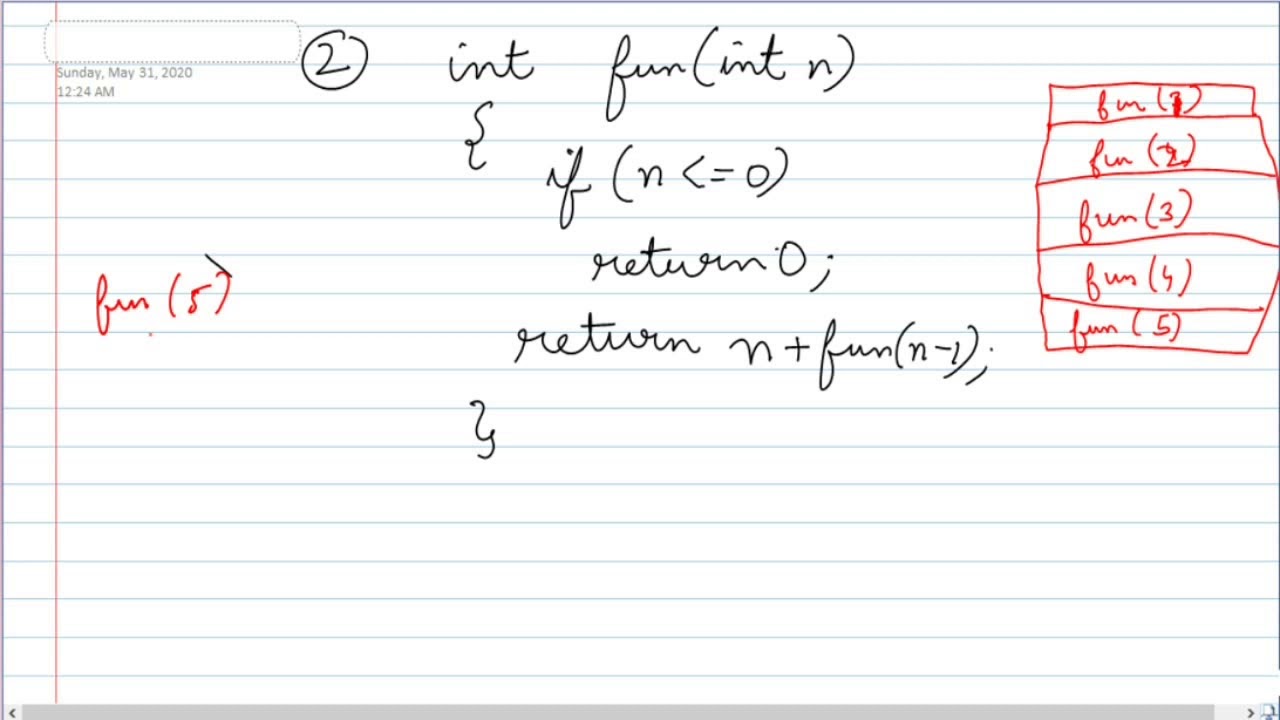 Sunday, May 31, 2020
12:24 AM
② int fun(int n)
{
if (n <= 0)
return 0;
return n + fun(n-1);
}
fun (5)
fun (1)
fun (2)
fun (3)
fun (4)
fun (5)